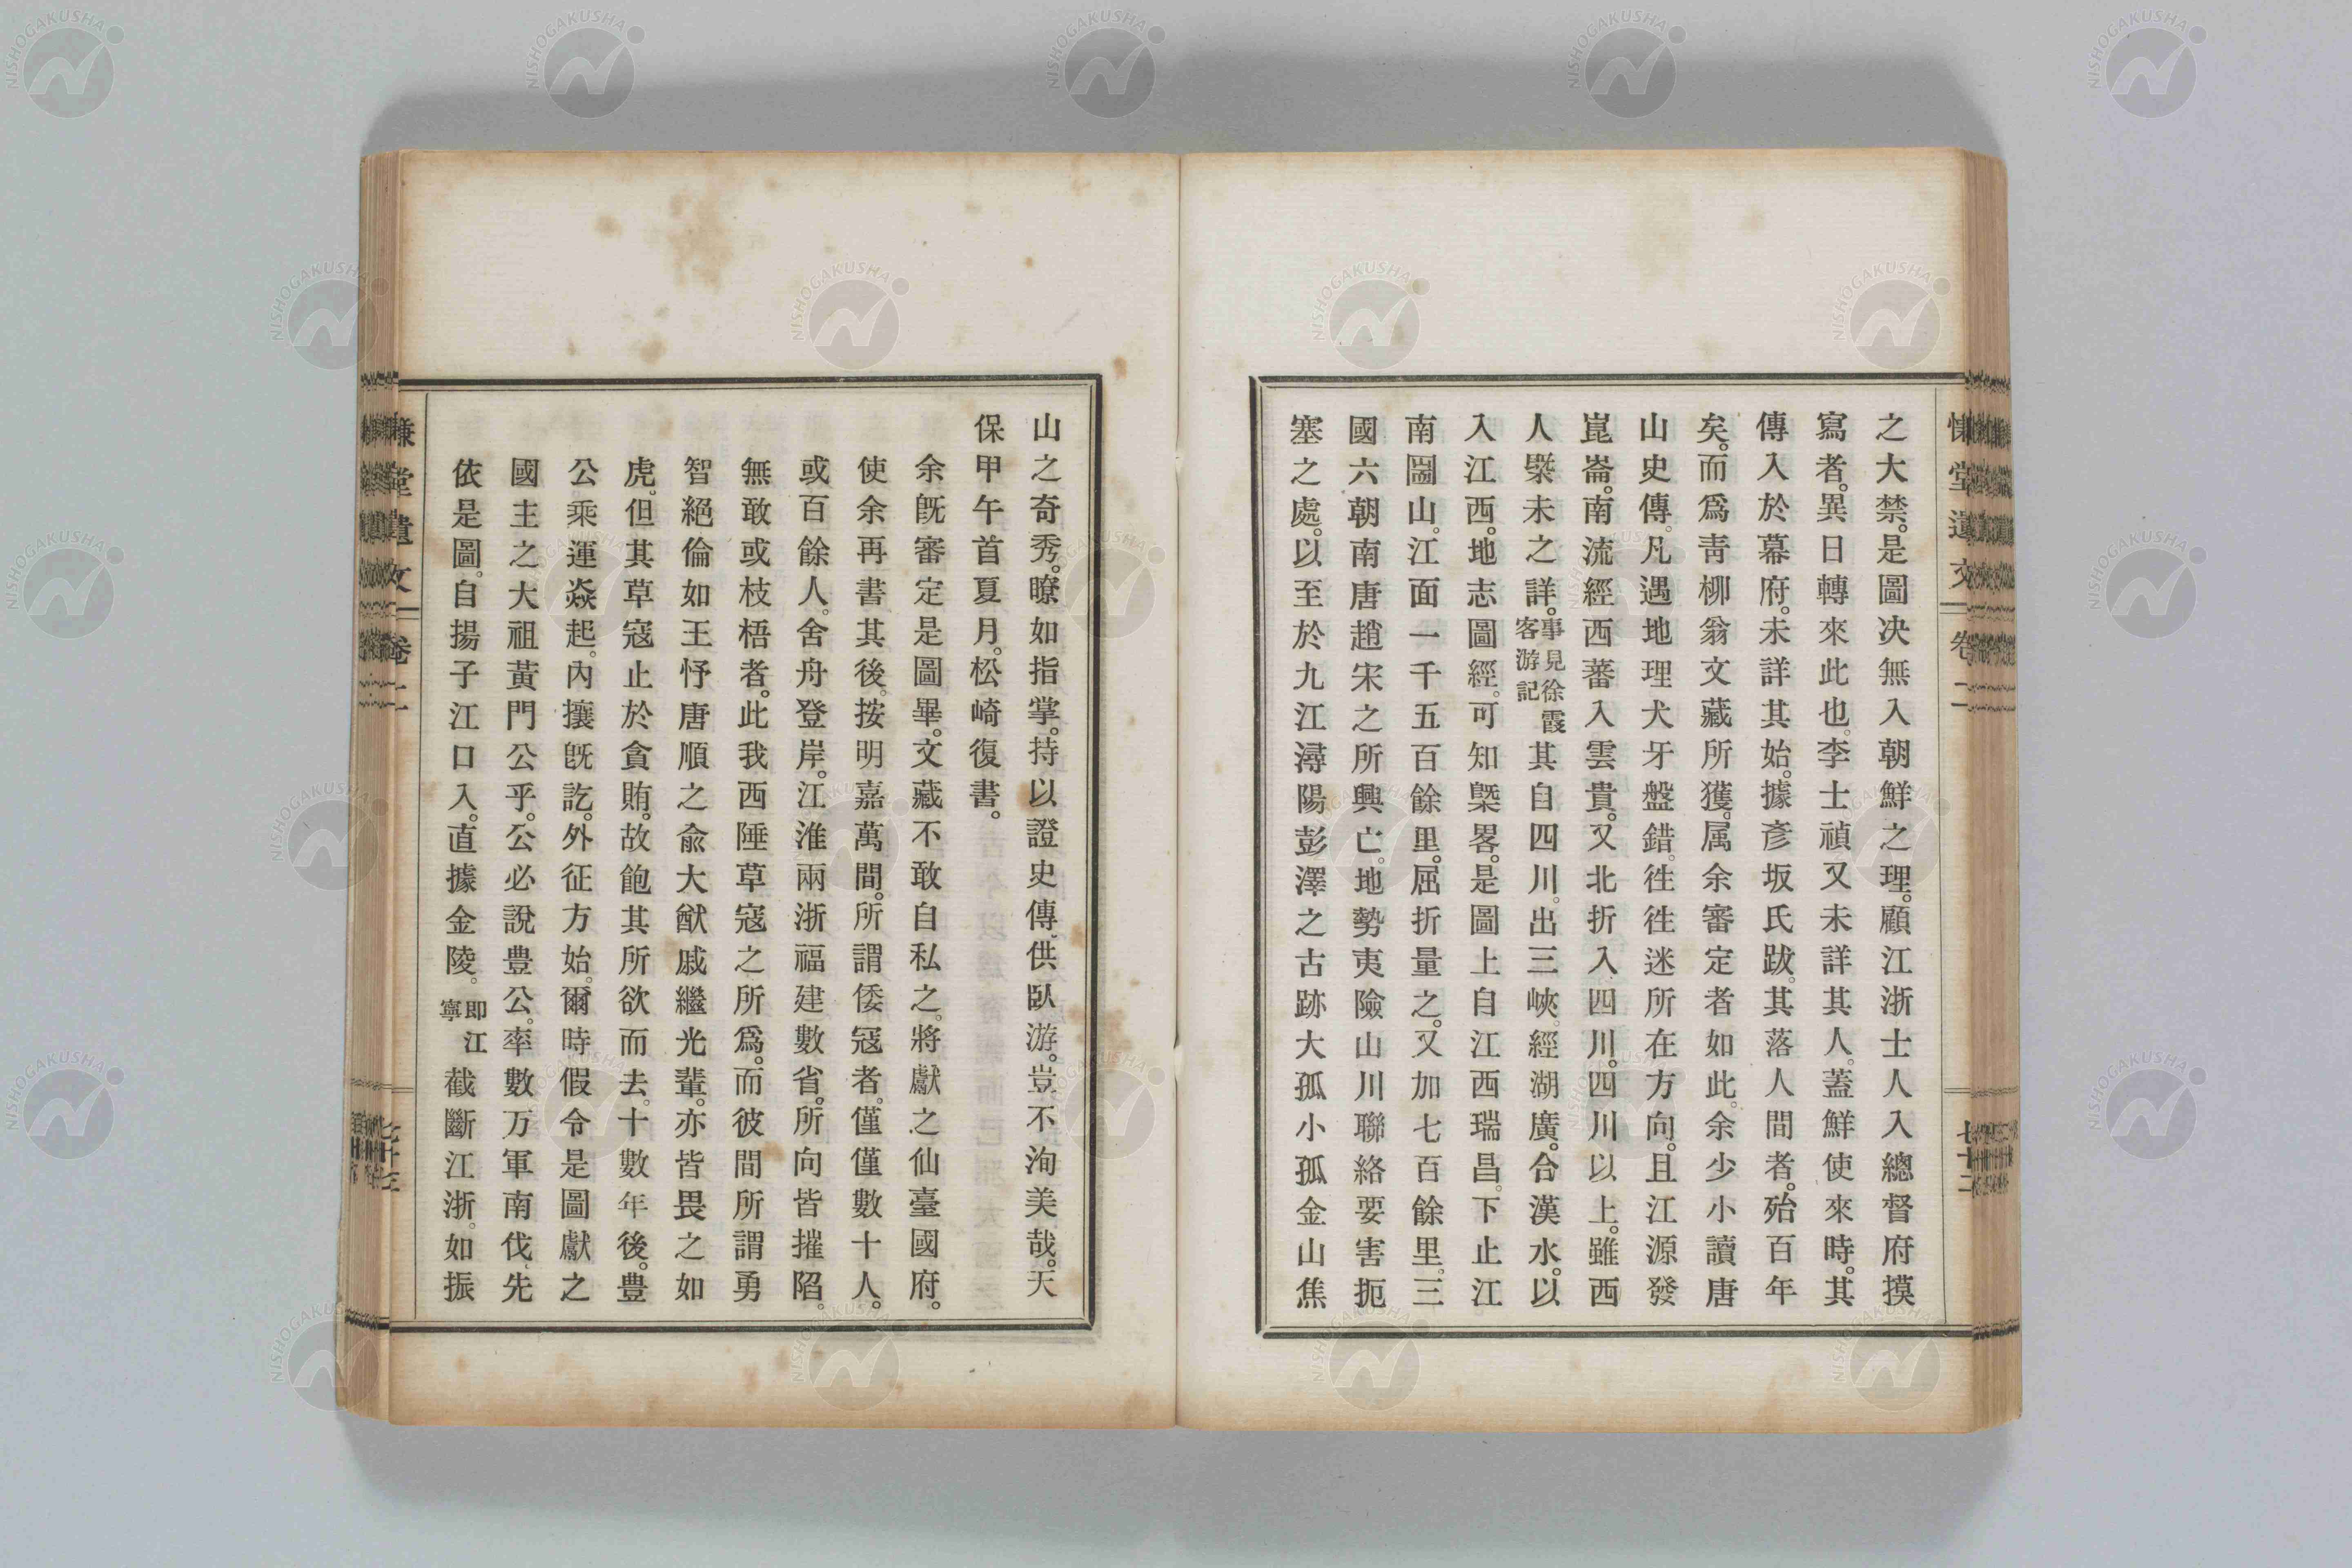 慊堂遺文 卷二 七十二
之大禁。是圖決無入朝鮮之理。顧江浙士人入總督府摸
寫者。異日轉來此也。李士禎又未詳其人。蓋鮮使來時。其
傳入於幕府。未詳其始。據彥坂氏跋。其落人間者。殆百年
矣。而爲靑柳翁文藏所獲。属余審定者如此。余少小讀唐
山史傳。凡遇地理犬牙盤錯。徃徃迷所在方向。且江源發
崑崙。南流經西蕃入雲貴。又北折入四川。四川以上。雖西
人槩未之詳。事見徐霞客游記其自四川。出三峽。經湖廣。合漢水。以
入江西。地志圖經。可知槩畧。是圖上自江西瑞昌。下止江
南圌山。江面一千五百餘里。屈折量之。又加七百餘里。三
國六朝南唐趙宋之所興亡。地勢夷險山川聯絡要害扼
塞之處。以至於九江潯陽彭澤之古跡大孤小孤金山焦
山之奇秀。瞭如指掌。持以證史傳、供臥游。豈不洵美哉。天
保甲午首夏月。松崎復書。
余旣審定是圖畢。文藏不敢自私之。將獻之仙臺國府。
使余再書其後。按明嘉萬間。所謂倭寇者。僅僅數十人。
或百餘人。舍舟登岸。江淮兩浙福建數省。所向皆摧陷。
無敢或枝梧者。此我西陲草寇之所爲。而彼間所謂勇
智絕倫如王忬唐順之兪大猷戚繼光輩。亦皆畏之如
虎。但其草寇止於貪賄。故飽其所欲而去。十數年後。豊
公乘運焱起。內攘旣訖。外征方始。爾時假令是圖獻之
國主之大祖黃門公乎。公必說豊公。率數万軍南伐、先
依是圖。自揚子江口入。直據金陵。即江寧截斷江浙。如振
慊堂遺文 卷二 七十三
NISHOGAKUSHA